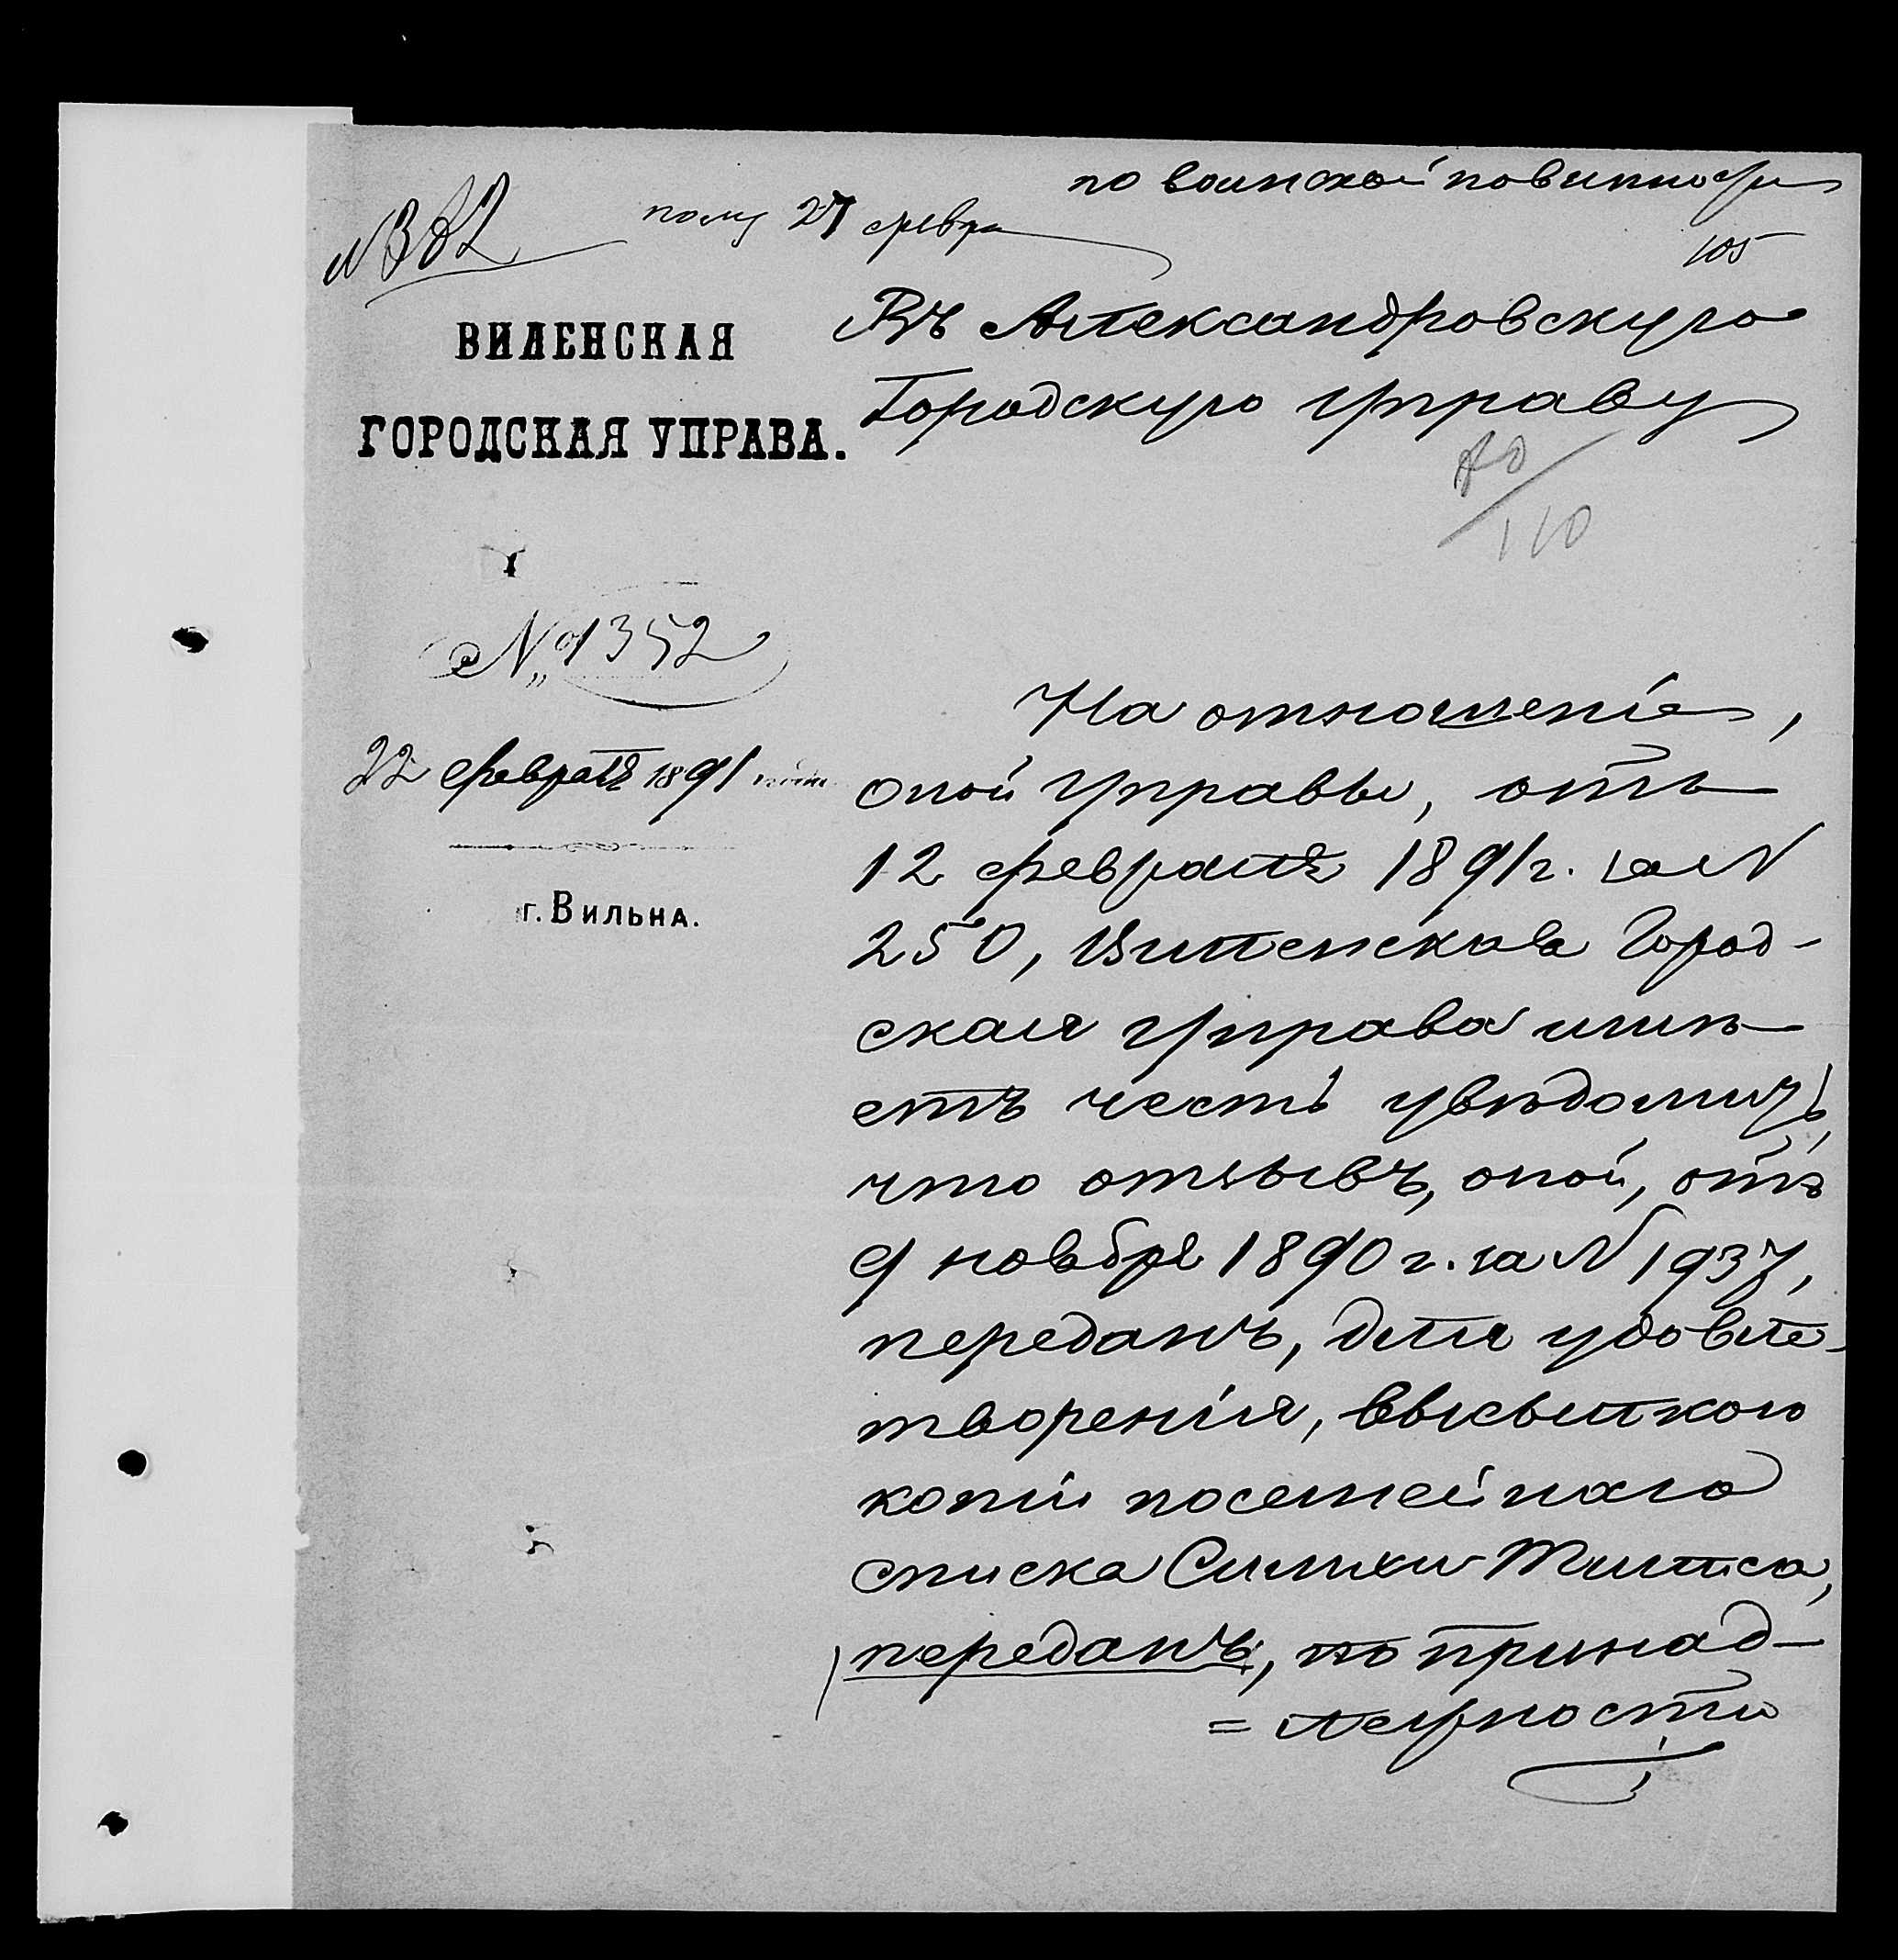 по воинской повинности
№ 382
полу 27 февра
105
ВИЛЕНСКАЯ
ГОРОДСКАЯ УПРАВА.
№ 1352
22 февраля 1891
г. Вильна.
Въ Александровскую
Городскую Управу
110
На отношеніе,
оной Управы, отъ
12 февраля 1891 г. за N
250, Виленская Город-
ская Управа имѣ-
етъ честь увѣдомить,
что отзывъ, оной, отъ
9 ноября 1890 г. за N 1937,
переданъ, для удовле-
творенія, высылкою
копіи посемейнаго
списка Симхи Тильса,
переданъ, по принад-
=лежности